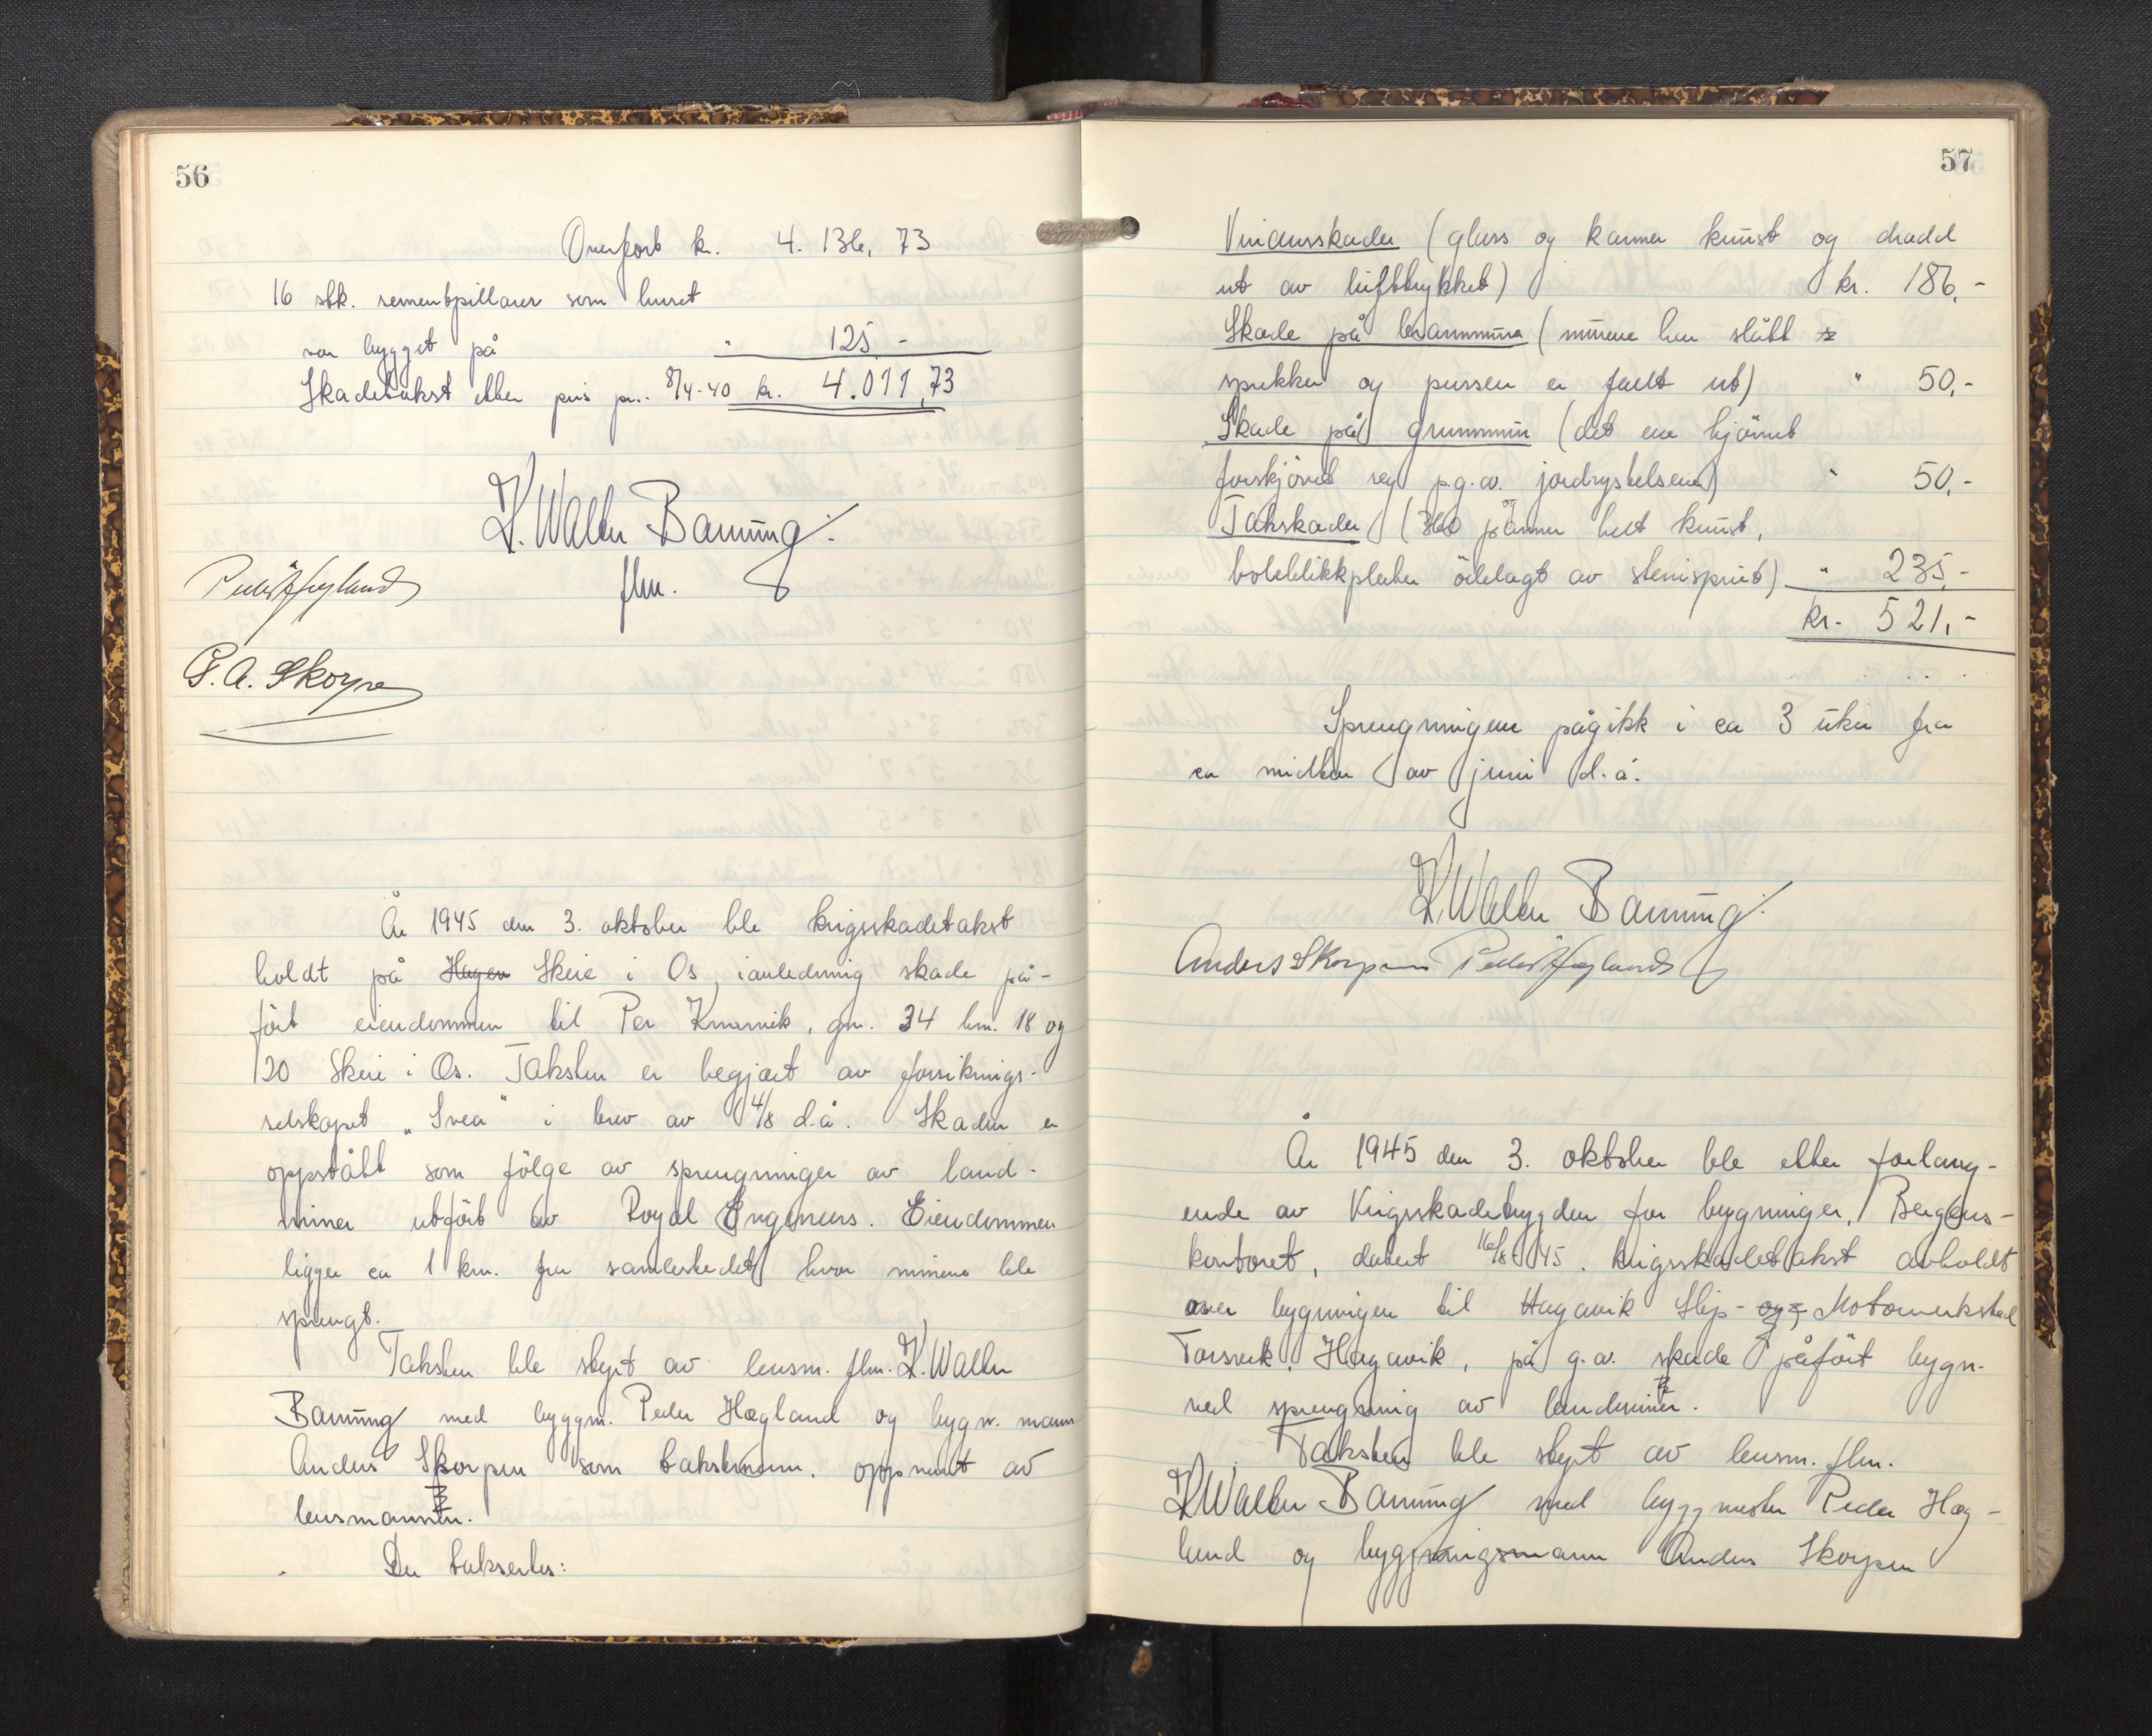 56
Overført kr. 4.136,73
16 stk. sementpillarer som huset
var bygget på " 125,-
Skadetakst etter pris pr. 8/4-40 kr. 4.011,73
K. Walter Banning.
flm.
Peder Hegland
A. Skorpen
År 1945 den 3. oktober ble krigsskadetakst
holdt på Hagen Skeie i Os, ianledning skade på-
ført eiendommen til Per, gnr. 34 bnr. 18 og
120 Skeie i Os. Taksten er begjært av forsiknings-
selskapet „Svea" i brev av 4/8 d.å. Skaden er
oppstått som følge av sprengninger av land-
miner utført av Royal Engineers. Eiendommen
ligger ca 1 km. fra samlestedet hvor minene ble
sprengt.
Taksten ble styrt av lensm. flm. K. Walter
Banning med byggm. Peder Hegland og bygn. mann
Anders Skorpen som takstmenn, oppnevnt av
lensmannen.
Der taksertes:
57
Vindusskader (glass og karmer knust og dradd
ut av lufttrykket) kr. 186,-
Skade på brannmura (murene har slått
sprekker og pussen er falt ut) " 50,-
Skade på grunnmur (det ene hjørnet
forskjøvet seg p.g.a. jordrystelsene) " 50,-
Takskader (360 panner helt knust, og
takblikkplater ödelagt av stensprut) " 235,-
kr. 521,-
Sprengningene pågikk i ca 3 uker fra
ca midten av juni d.å.
K. Walter Banning.
Anders Skorpen Peder Hegland
År 1945 den 3. oktober ble etter forlang-
ende av Krigsskadetrygden for bygninger, Bergens-
kontoret, datert 16/8 45. krigsskadetakst avholdt
over bygningen til Hagavik Slip- og Motorverksted
Torsvik, Hagavik, på g.a. skade påført bygn.
ved sprengning av landminer.
Taksten ble styrt av lensm. flm.
K Walter Banning med byggmester Peder Heg-
land og bygningsmann Anders Skorpen